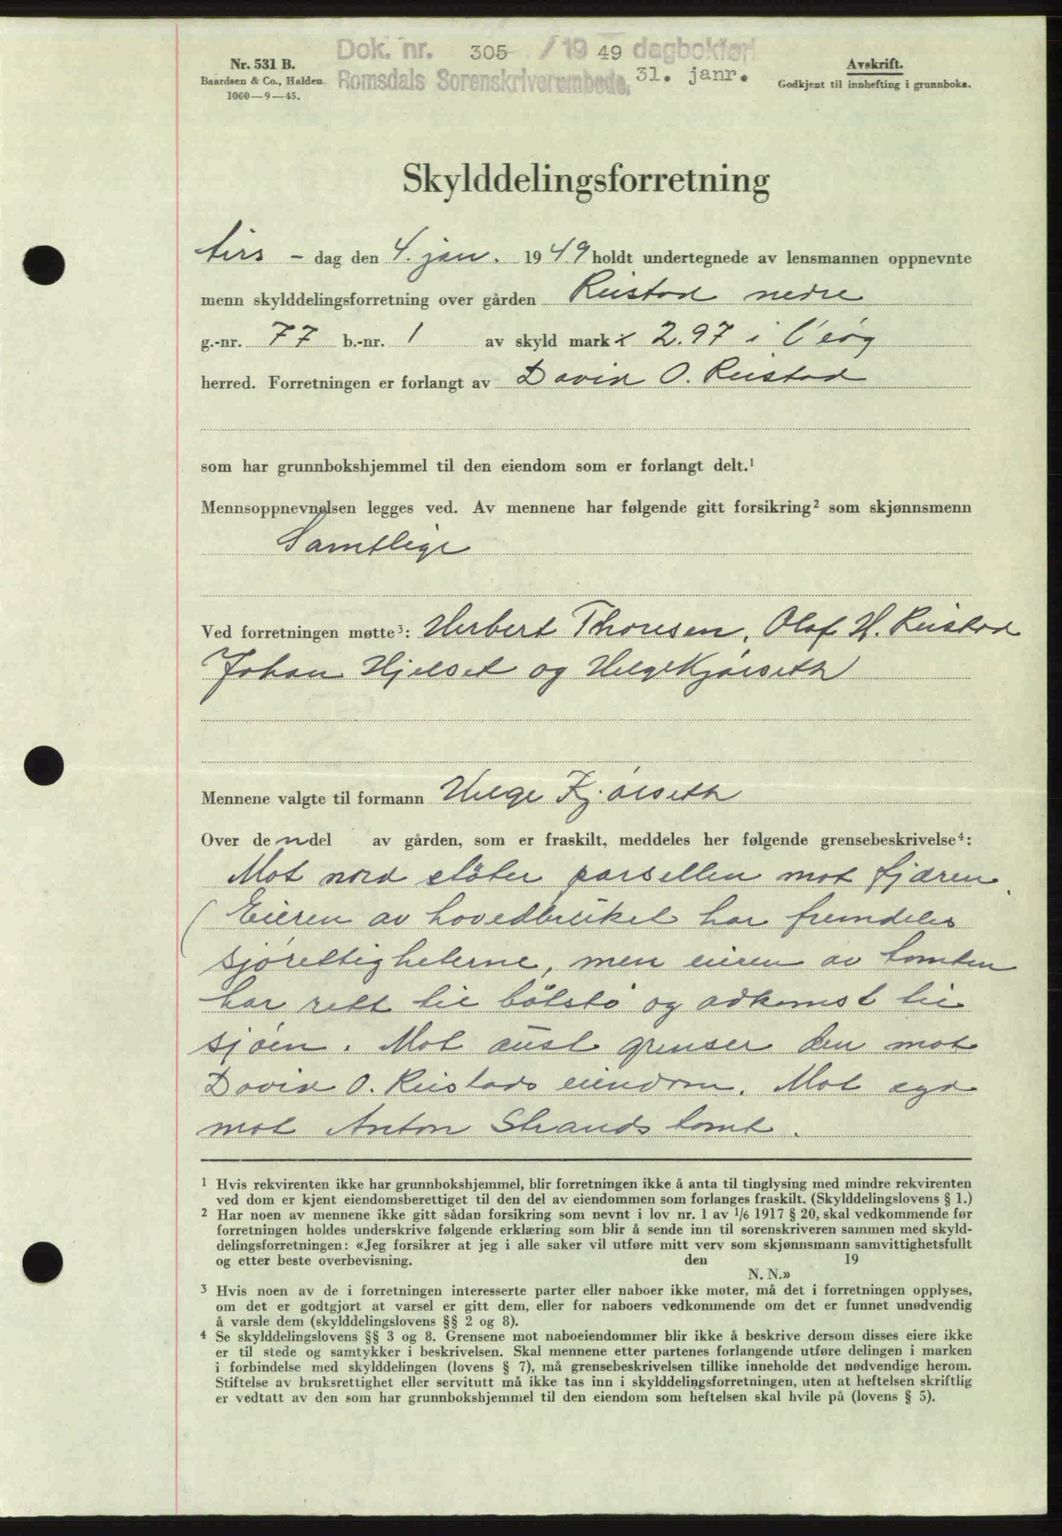 Dok. nr. 305 / 19 49 dagbokført
Romsdals Sorenskriverembede, 31. janr.
Nr. 531 B.
Baardsen & Co., Halden.
1060—9—45.
Avskrift.
Godkjent til innhefting i grunnboka.
Skylddelingsforretning
tirs - dag den 4. jan. 1949 holdt undertegnede av lensmannen oppnevnte
menn skylddelingsforretning over gården Reistad nedre
g.-nr. 77 b.-nr. 1 av skyld mark 2.97 i Veøy
herred. Forretningen er forlangt av David O. Reistad
som har grunnbokshjemmel til den eiendom som er forlangt delt.¹
Mennsoppnevnelsen legges ved. Av mennene har følgende gitt forsikring² som skjønnsmenn
Samtlige
Ved forretningen møtte³: Herbert Thoresen, Olaf H. Reistad
Johan Hjelset og Helge Kjörseth
Mennene valgte til formann Helge Kjörseth
Over den del av gården, som er fraskilt, meddeles her følgende grensebeskrivelse⁴:
Mot nord stöter parsellen mot fjæren.
(Eieren av hovedbruket har fremdeles
sjörettigheterne, men eieren av tomten
har rett til båtstö og adkomst til
sjöen. Mot aust grenser den mot
David O. Reistads eiendom. Mot syd
mot Anton Strands tomt.
¹ Hvis rekvirenten ikke har grunnbokshjemmel, blir forretningen ikke å anta til tinglysing med mindre rekvirenten
ved dom er kjent eiendomsberettiget til den del av eiendommen som forlanges fraskilt. (Skylddelingslovens § 1.)
² Har noen av mennene ikke gitt sådan forsikring som nevnt i lov nr. 1 av 1/6 1917 § 20, skal vedkommende før
forretningen holdes underskrive følgende erklæring som blir å sende inn til sorenskriveren sammen med skyld-
delingsforretningen: «Jeg forsikrer at jeg i alle saker vil utføre mitt verv som skjønnsmann samvittighetsfullt
og etter beste overbevisning. den 19
N. N.»
³ Hvis noen av de i forretningen interesserte parter eller naboer ikke møter, må det i forretningen opplyses,
om det er godtgjort at varsel er gitt dem, eller for naboers vedkommende om det er funnet unødvendig
å varsle dem (skylddelingslovens §§ 2 og 8).
⁴ Se skylddelingslovens §§ 3 og 8. Grensene mot naboeiendommer blir ikke å beskrive dersom disses eiere ikke
er til stede og samtykker i beskrivelsen. Skal mennene etter partenes forlangende utføre delingen i marken
i forbindelse med skylddelingen (lovens § 7), må grensebeskrivelsen tillike inneholde det nødvendige herom.
Stiftelse av bruksrettighet eller servitutt må ikke tas inn i skylddelingsforretningen, uten at heftelsen skriftlig
er vedtatt av den som har grunnbokshjemmel til den eiendom som heftelsen skal hvile på (lovens § 5).